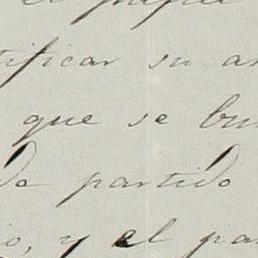 el
tificar su a
que se bu
do partido
io, y el pa